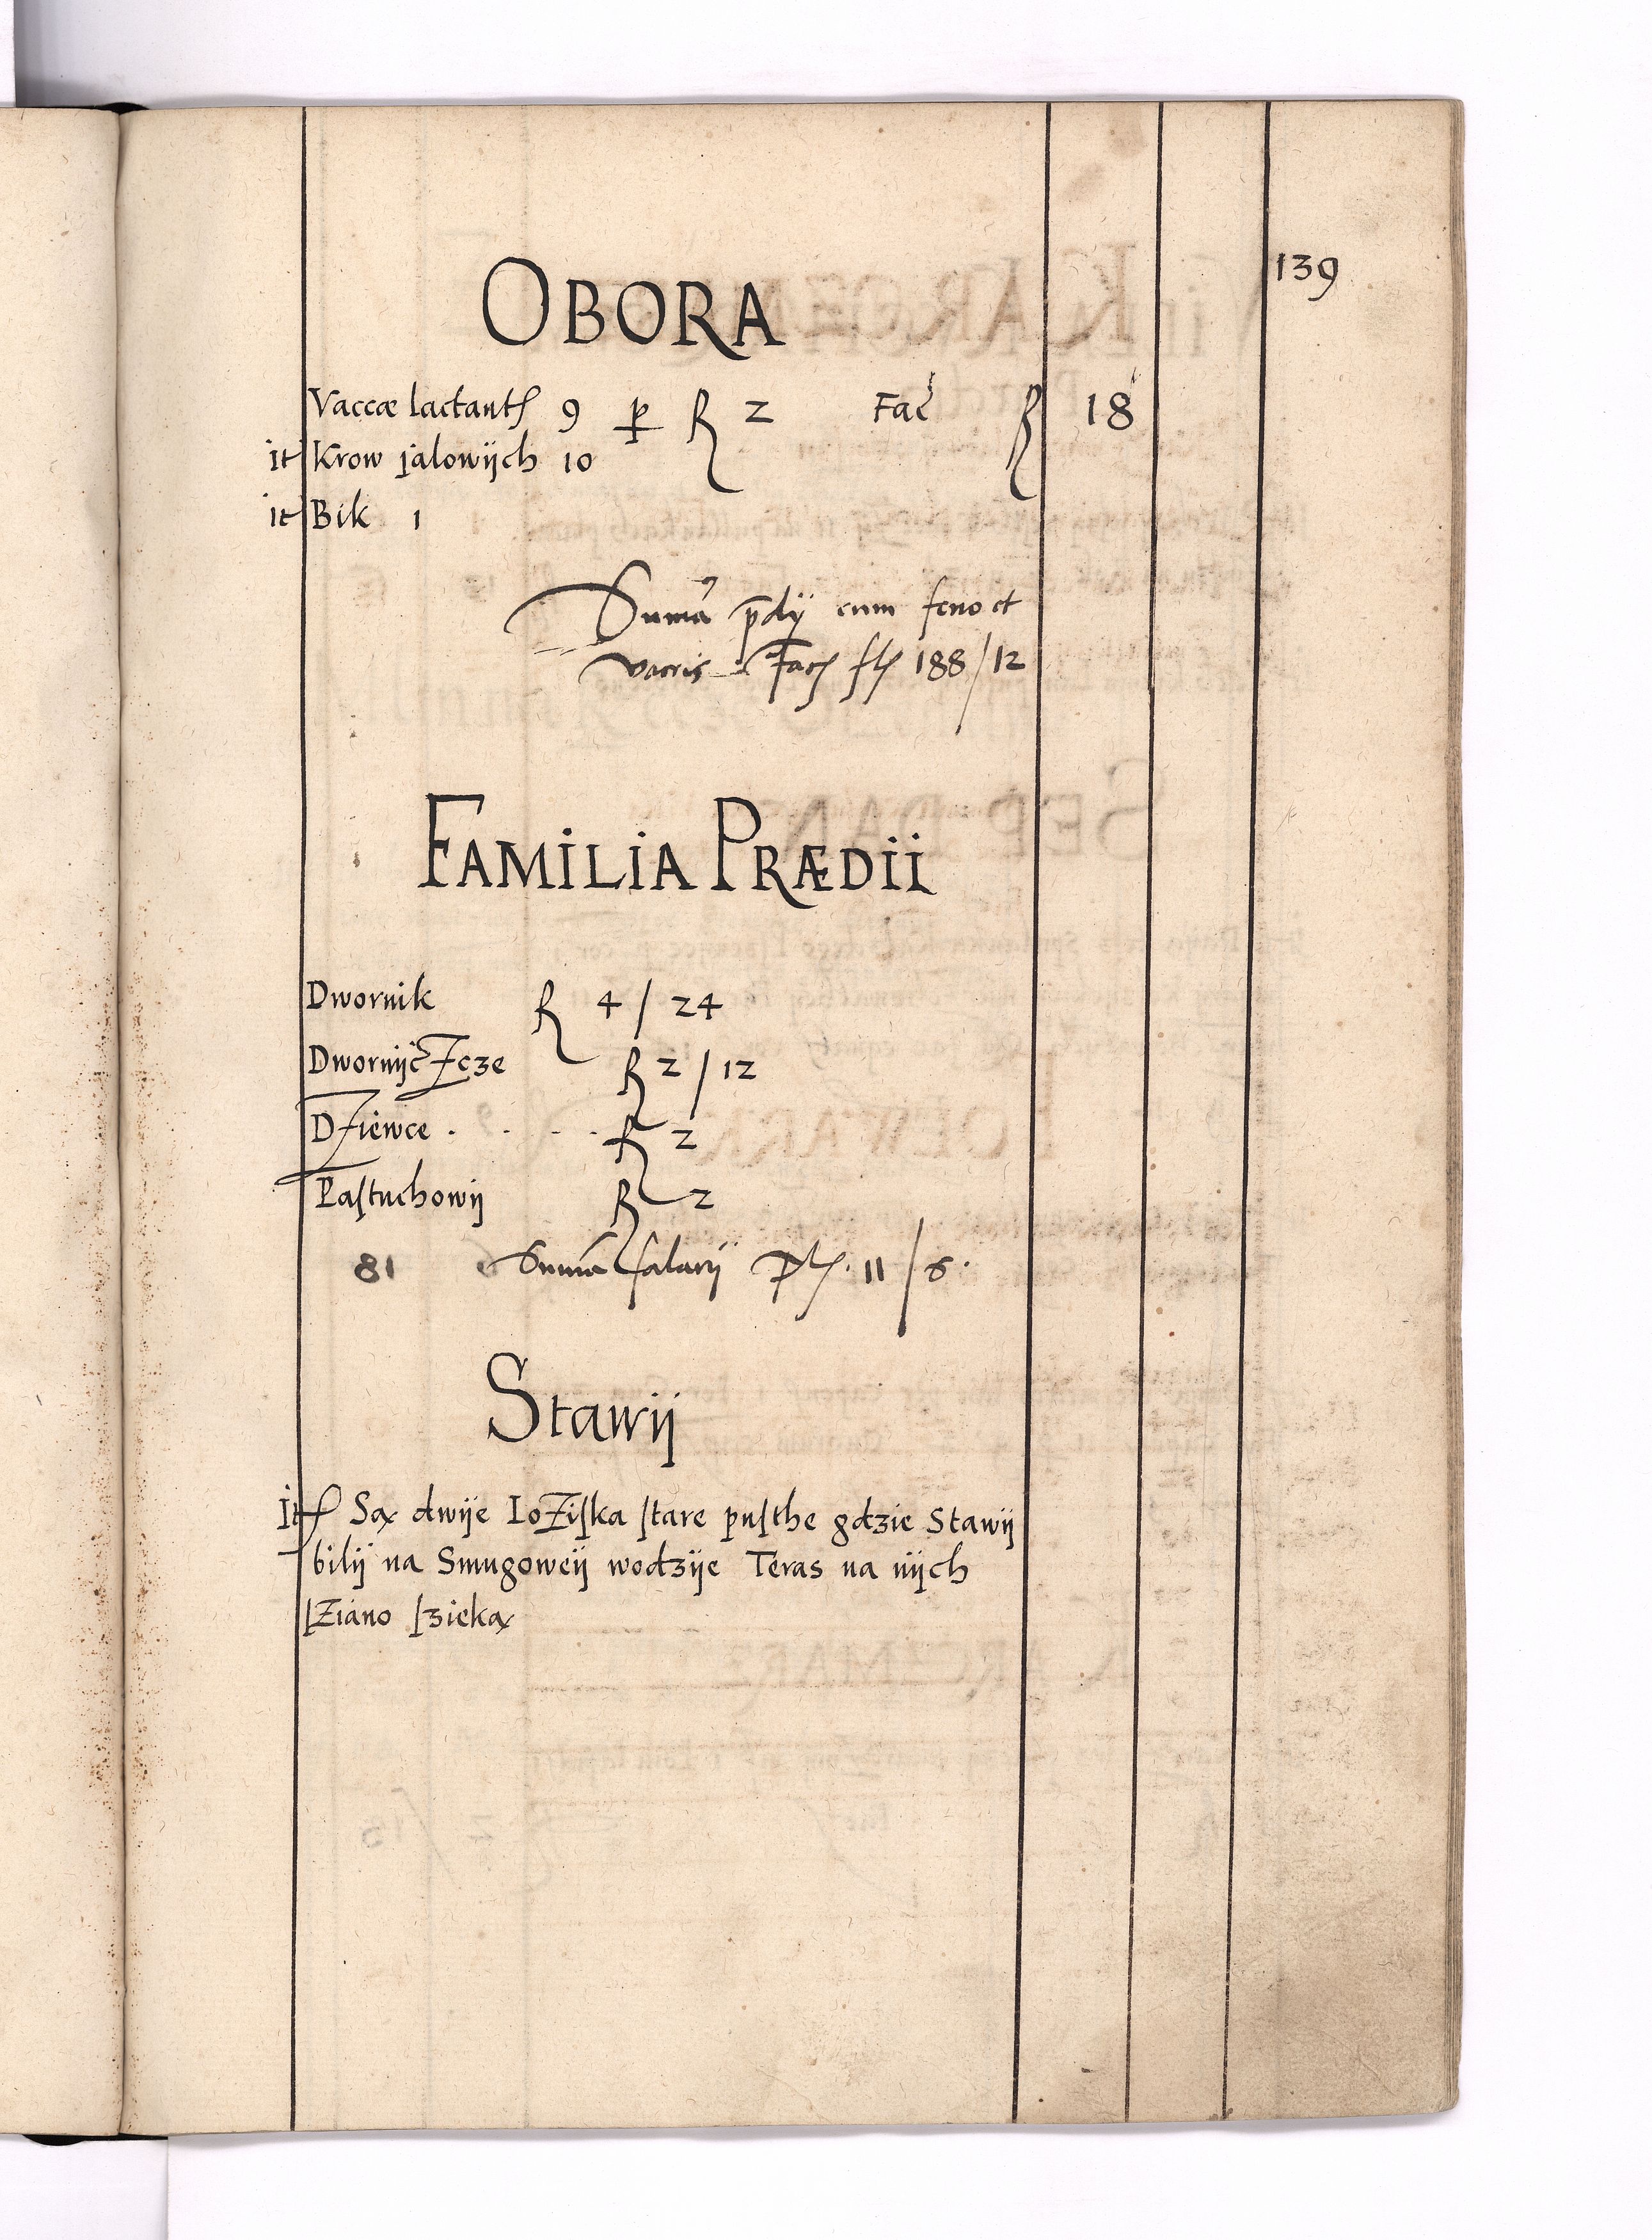 139
OBORA
Vaccæ lactant 9 per R 2 Fac R 18
it Krow jalowÿch 10
it Bik 1
Suma pdÿ cum feno et
vaccis Fac fl 188/12
FAMILIA PRÆDII
Dwornik R 4/24
DwornÿcZcze R 2/12
DZiewce . . . . R 2
Paſtuchowÿ R 2
81 Suma ſalarÿ Fl. 11/6.
Stawÿ
It Są dwÿe LoZiſka ſtare puſthe gdzie Stawÿ
bilÿ na Smugoweÿ wodzÿe Teras na nÿch
ſZiano ſzieką